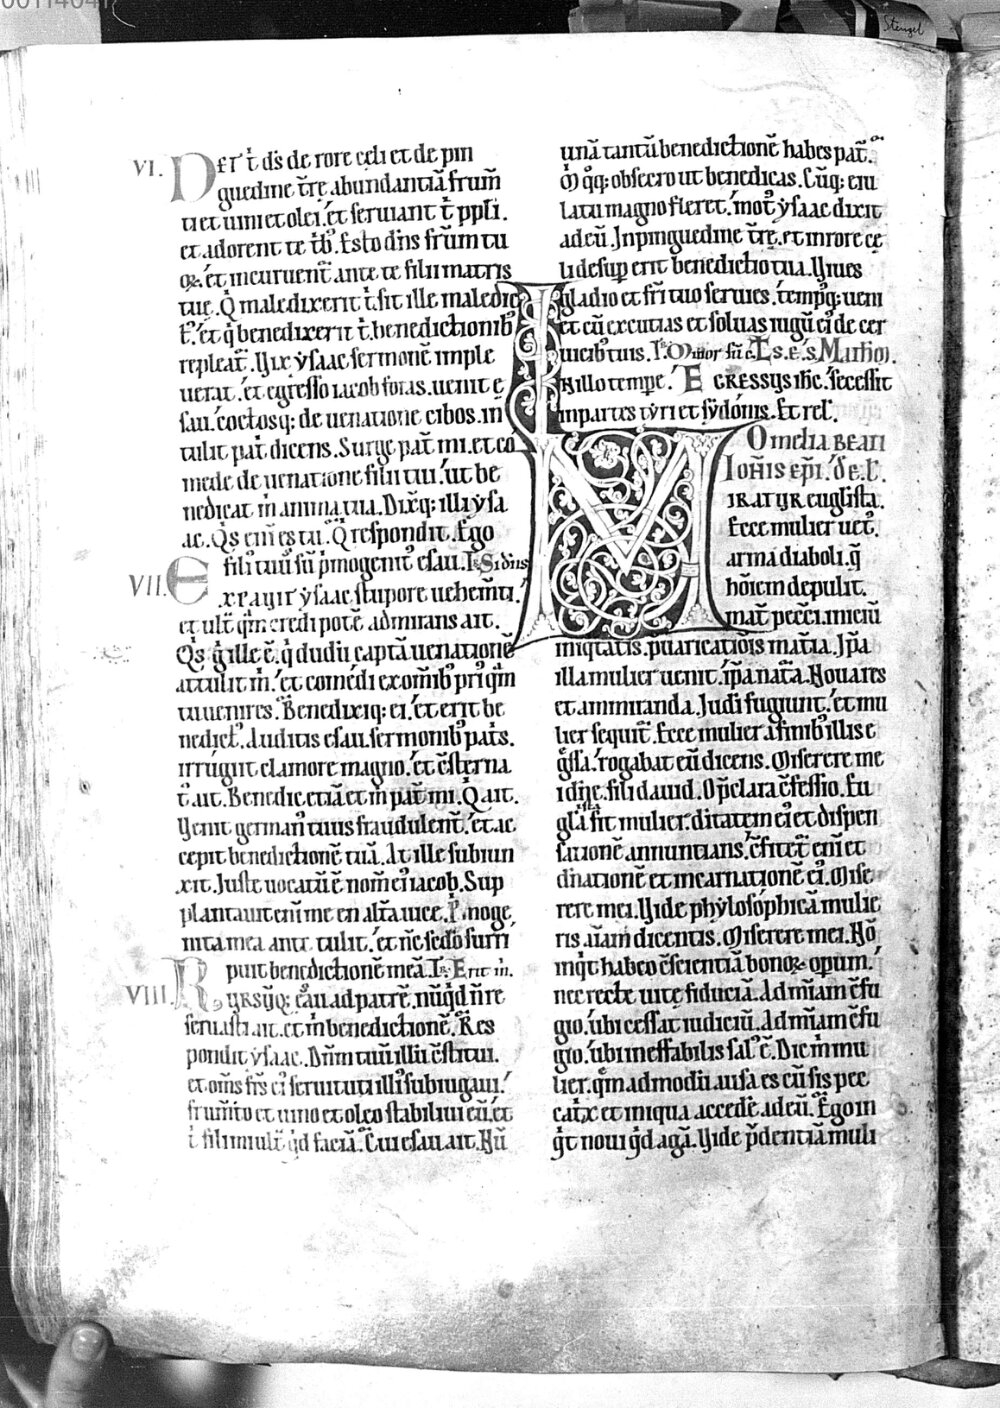 00114041
Stengel
VI. Det t̄ ds̄ de rore celi et de pin
guedine tr̄e abundantiā frum̄
ti et uini et olei. et seruiant t̄ pp̄li.
et adorent te tb̄. Esto dn̄s fr̄um tu
oꝝ. et incuruent̄ ante te filii matris
tue. Q̄ maledixerit t̄. sit ille maledic
t᷒. et q̄ benedixerit t̄. benedictionib᷒
repleat̄. Vix ẏsaac sermonē imple
uerat. et egresso iacob foras. uenit e
sau. coctosq; de uenatione cibos. in
tulit pat̄ dicens. Surge pat̄ mi. et cō
mede de uenatione filii tui. ut be
nedicat m̄ anima tua. Dix̄q; illi ẏsa
ac. Qs̄ enī es tu. Q̄ respondit. Ego
filī tuū sū pmogenit᷒ esau. Si dn̄s
VII. Expauit ẏsaac stupore uehemt̄i.
et ult̄ q̄m credi potē admirans ait.
Qs̄ g̣ ille ē. q̄ dudū captā uenationē
attulit m̄. et comedi ex omīb᷒ pri᷒q̄m
tu uenires. Benedixiq; ei. et erit be
nedict᷒. Auditis esau sermonib᷒ pat̄s.
irrugiit clamore magno. et cōsterna
t᷒ ait. Benedic etiā et m̄ pat̄ mi. Q̄ ait.
Venit german᷒ tuus fraudulent̄. et ac
cepit benedictionē tuā. At ille subiun
xit. Juste uocatū ē nom̄ ei᷒ iacob. Sup
plantauit enī me en alt̄a uice. Pmoge
nita mea ante tulit. et nc̄ sedo surri
puit benedictionē meā. Erit m̄.
VIII. Rursūq; esau ad patrē. nūq̄d n̄ re
seruasti ait. et m̄ benedictionē. Res
pondit ẏsaac. Dnm̄ tuū illū cōstitui.
et om̄s frs̄ ei᷒ seruituti illi᷒ subiugaui.
frum̄to et uino et oleo stabiliui eū. et
t̄ fili mi ult̄ q̄d faciā. Cui esau ait. Nū
unā tantū benedictionē habes pat̄.
M q̄q; obsecro ut benedicas. Cūq; eiu
latu magno fleret. mot᷒ ẏsaac dixit
ad eū. In pinguedine tr̄e. et in rore ce
li desup erit benedictio tua. Viues
gladio et fr̄i tuo seruies. tempq; ueni
et cū excutias et soluas iugū ei᷒ de cer
uicib᷒ tuis. Minor sū c. Ls. e. s. Mathm.
IN illo tempe. Egressus ihc. secessit
in partes tẏri et sẏdonis. Et rel᷒.
Omelia beati
Iohīs ep̄i. de l.
MIratur euglista.
Ecce mulier uet᷒.
arma diaboli. q̄
hōiem depulit.
mat̄ pecc̄i. iniciū
iniqtatis. puaricatiōis mat̄ia. Ip̄a
illa mulier uenit. ip̄a nat̄a. Noua res
et ammiranda. Judi fugiunt. et mu
lier sequit̄. Ecce mulier a finib᷒ illis e
gssa. rogabat eū dicens. Miserere me
i dn̄e. fili dauid. O pclara cōfessio. Eu
glista fit mulier. ditatem ei᷒ et dispen
sationē annuntians. cōfitet̄ enī et
dn̄ationē et incarnationē ei᷒. Mise
rere mei. Vide phẏlosophicā mulie
ris aīam dicentis. Miserere mei. Nō
inq̄t habeo cōscientiā bonoꝝ opum.
nec recte uite fiduciā. Ad m̄iam cōfu
gio. ubi cessat iudiciū. Ad m̄iam cōfu
gio. ubi ineffabilis sal᷒ ē. Dic m̄ mu
lier. q̄m admodū ausa es cū sis pec
catx et iniqua accedē ad eū. Ego in
q̄t noui q̄d agā. Vide pdentiā muli